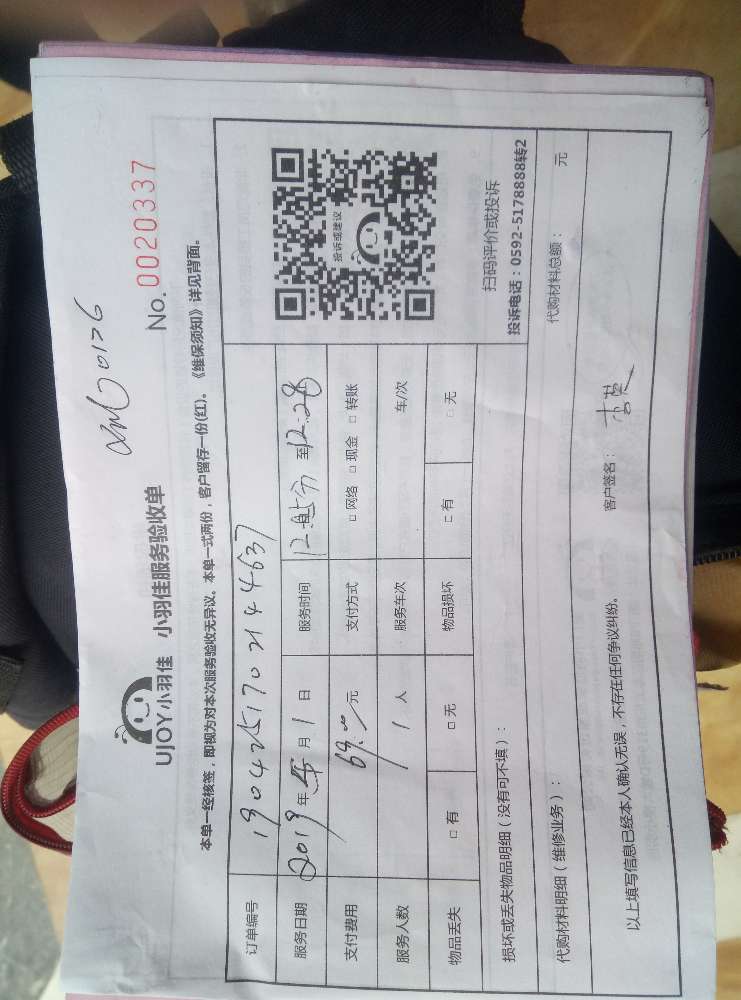 xmb0176
UJOY小羽佳 小羽佳服务验收单
No. 0020337
本单一经核签，即视为对本次服务验收无异议。本单一式两份，客户留存一份(红)。《维保须知》详见背面。
订单编号 1904251702144637
服务日期 2019年5月1日 服务时间 至12:28
支付费用 69.00元 支付方式 □ 网络 □ 现金 □ 转账
服务人数 1 人 服务车次 车/次
物品丢失 □ 有 □ 无 物品损坏 □ 有 □ 无
投诉或建议
扫码评价或投诉
投诉电话：0592-5178888转2
损坏或丢失物品明细（没有可不填）：
代购材料明细（维修业务）： 代购材料总额： 元
以上填写信息已经本人确认无误，不存在任何争议纠纷。 客户签名：